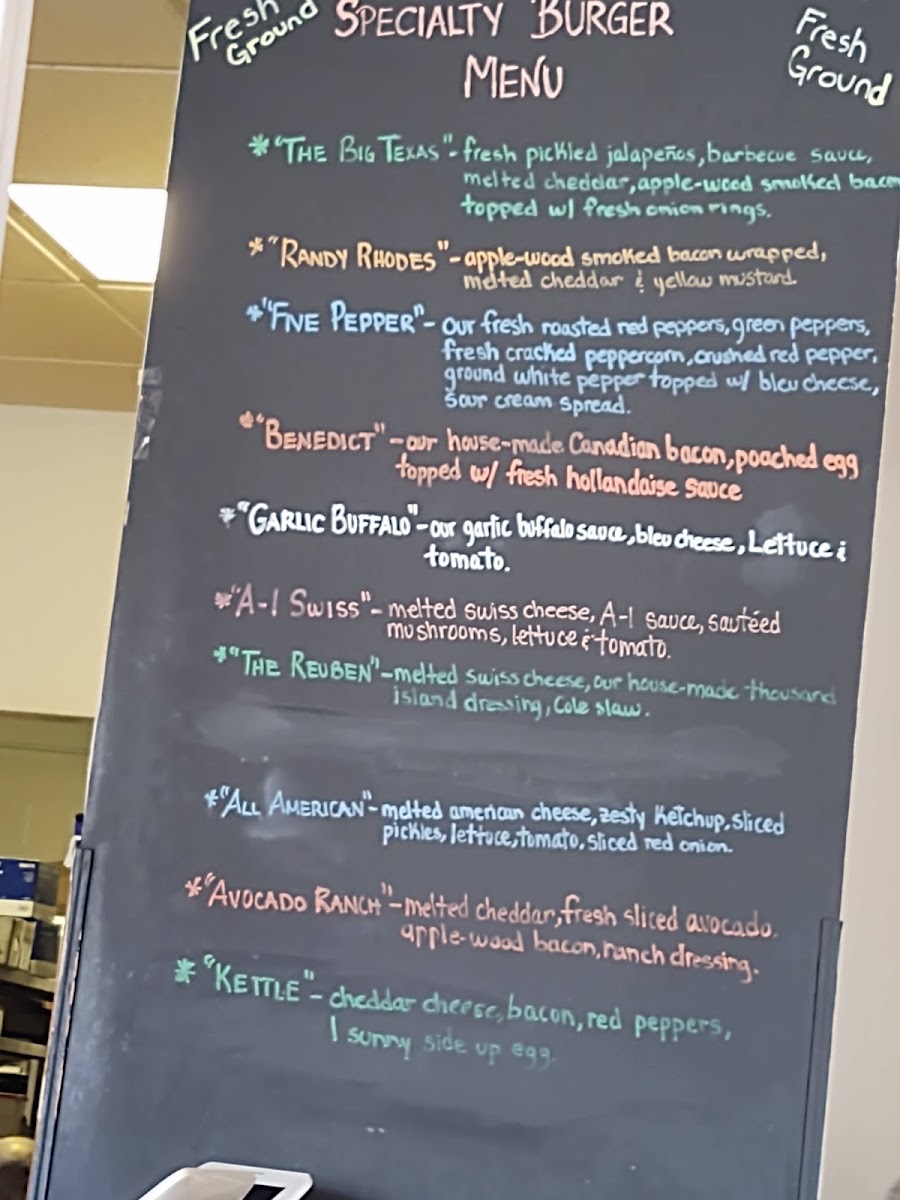 Fresh
Ground
SPECIALTY BURGER
MENU
Fresh
Ground
* "THE BIG TEXAS" - fresh pickled jalapeños, barbecue sauce,
melted cheddar, apple-wood smoked bacon
topped w/ fresh onion rings.
* "RANDY RHODES" - apple-wood smoked bacon wrapped,
melted cheddar & yellow mustard
* "FIVE PEPPER" - our fresh roasted red peppers, green peppers,
fresh cracked peppercorn, crushed red pepper,
ground white pepper topped w/ bleu cheese,
sour cream spread.
* "BENEDICT" - our house-made Canadian bacon, poached egg
topped w/ fresh hollandaise sauce
* "GARLIC BUFFALO" - our garlic buffalo sauce, bleu cheese, Lettuce &
tomato.
* "A-1 SWISS" - melted swiss cheese, A-1 sauce, sautéed
mushrooms, lettuce & tomato.
* "THE REUBEN" - melted swiss cheese, our house-made thousand
island dressing, Cole slaw.
* "ALL AMERICAN" - melted american cheese, zesty Ketchup, sliced
pickles, lettuce, tomato, sliced red onion.
* "AVOCADO RANCH" - melted cheddar, fresh sliced avocado.
apple-wood bacon, ranch dressing.
* "KETTLE" - cheddar cheese, bacon, red peppers,
1 sunny side up egg.